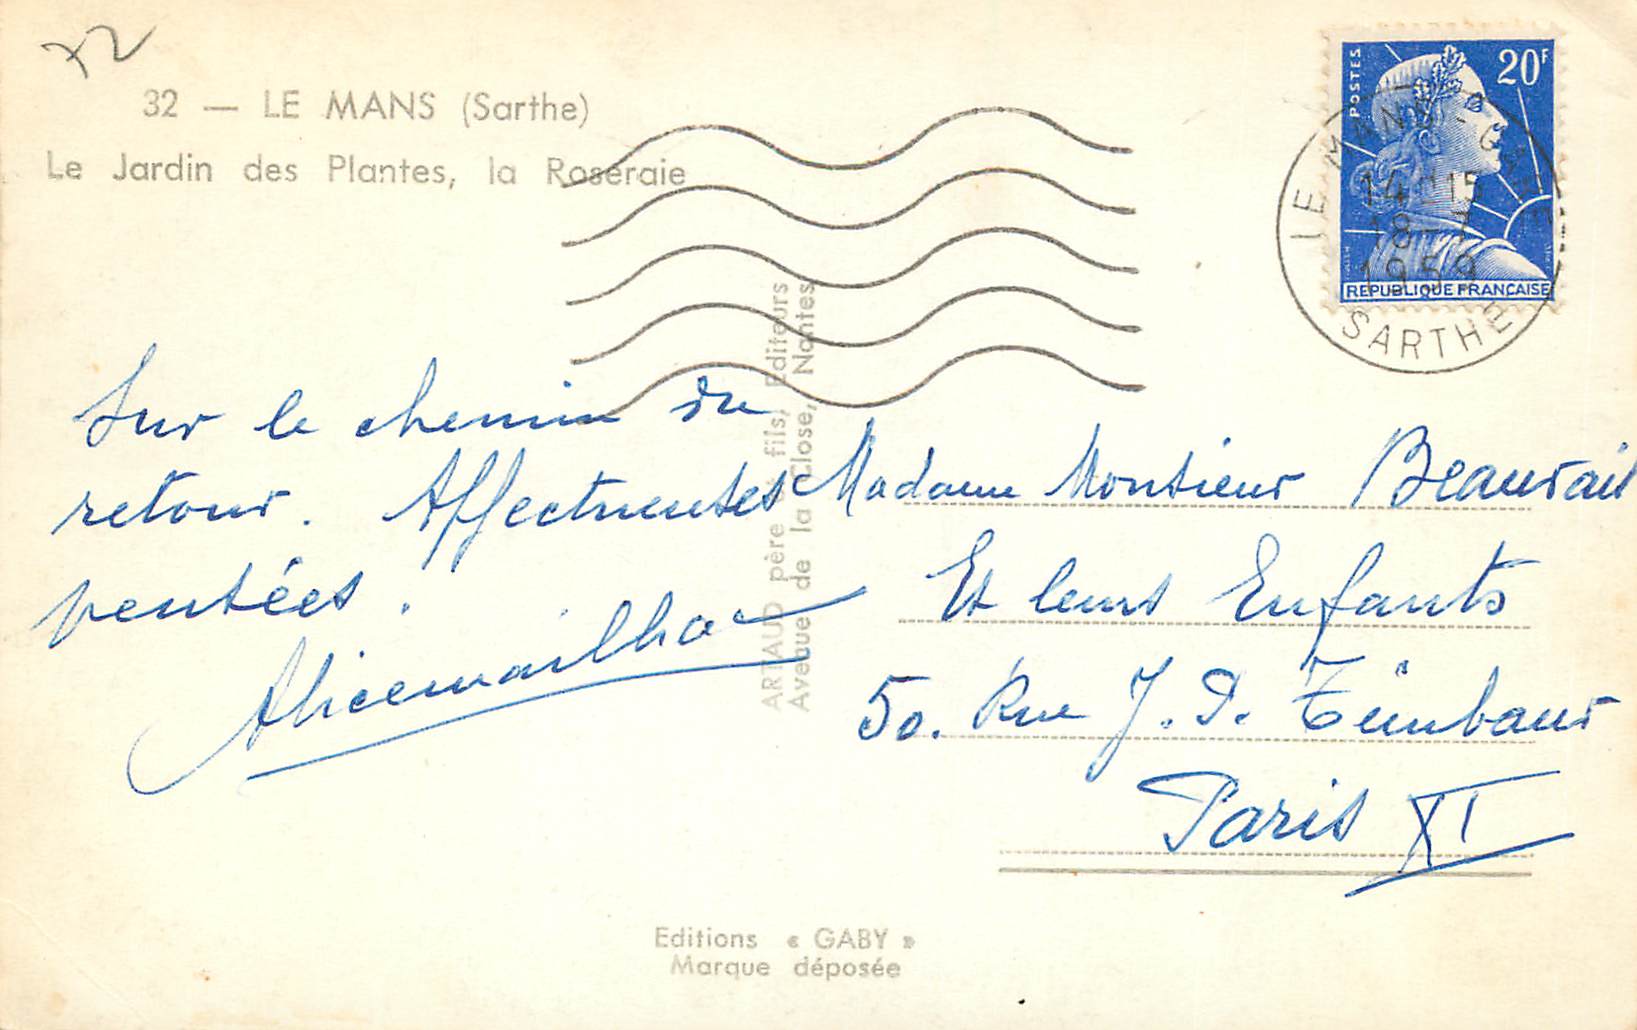 72
32 — LE MANS (Sarthe)
Le Jardin des Plantes, la Roseraie
POSTES
20F
LE MANS - GARE
14H15
18-7
1959
REPUBLIQUE FRANÇAISE
SARTHE
Sur le chemin du
retour. Affectueuses
pensées.
Alicemailhac
ARTAUD père & fils, Editeurs
Avenue de la Close, Nantes
Madame Monsieur Beauvais
Et leurs Enfants
50. Rue J. P. Timbaud
Paris XI
Editions « GABY »
Marque déposée